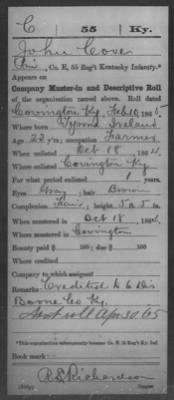 C 55 Ky.
John Cover
Pvt., Co. E, 55 Reg't Kentucky Infantry.*
Appears on
Company Muster-in and Descriptive Roll
of the organization named above. Roll dated
Covington Ky, Feb 10, 1865.
Where born Tyrone Ireland
Age 22 y'rs; occupation Farmer
When enlisted Oct 18, 1864.
Where enlisted Covington Ky
For what period enlisted 1 years.
Eyes Gray; hair Brown
Complexion Fair; height 5 ft. 5 in.
When mustered in Oct 18, 1864.
Where mustered in Covington
Bounty paid $ 100; due $ 100
Where credited
Company to which assigned
Remarks: Credited to 6 Dis
Boone Co Ky.
Apr 30, 65
Book mark:
R S Richardson
Copyist.